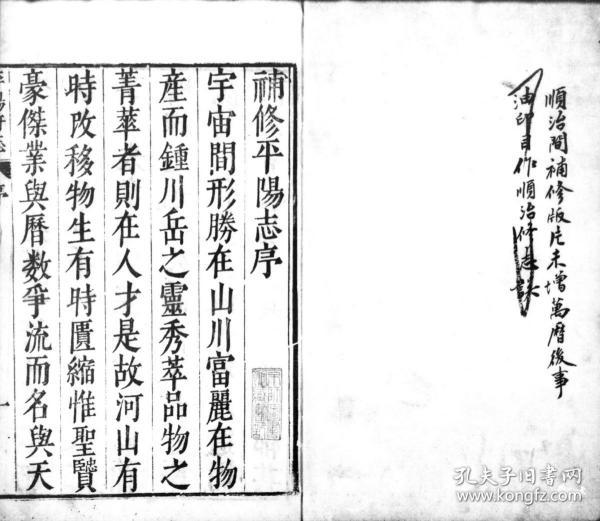 順治間補修版片未增萬曆後事
油印目作順治修志誤
補修平陽志序
宇宙間形勝在山川富麗在物
產而鍾川岳之靈秀萃品物之
菁華者則在人才是故河山有
時改移物生有時匱縮惟聖賢
豪傑業與曆數爭流而名與天
平陽府志
序
一
孔夫子旧书网
www.kongfz.com